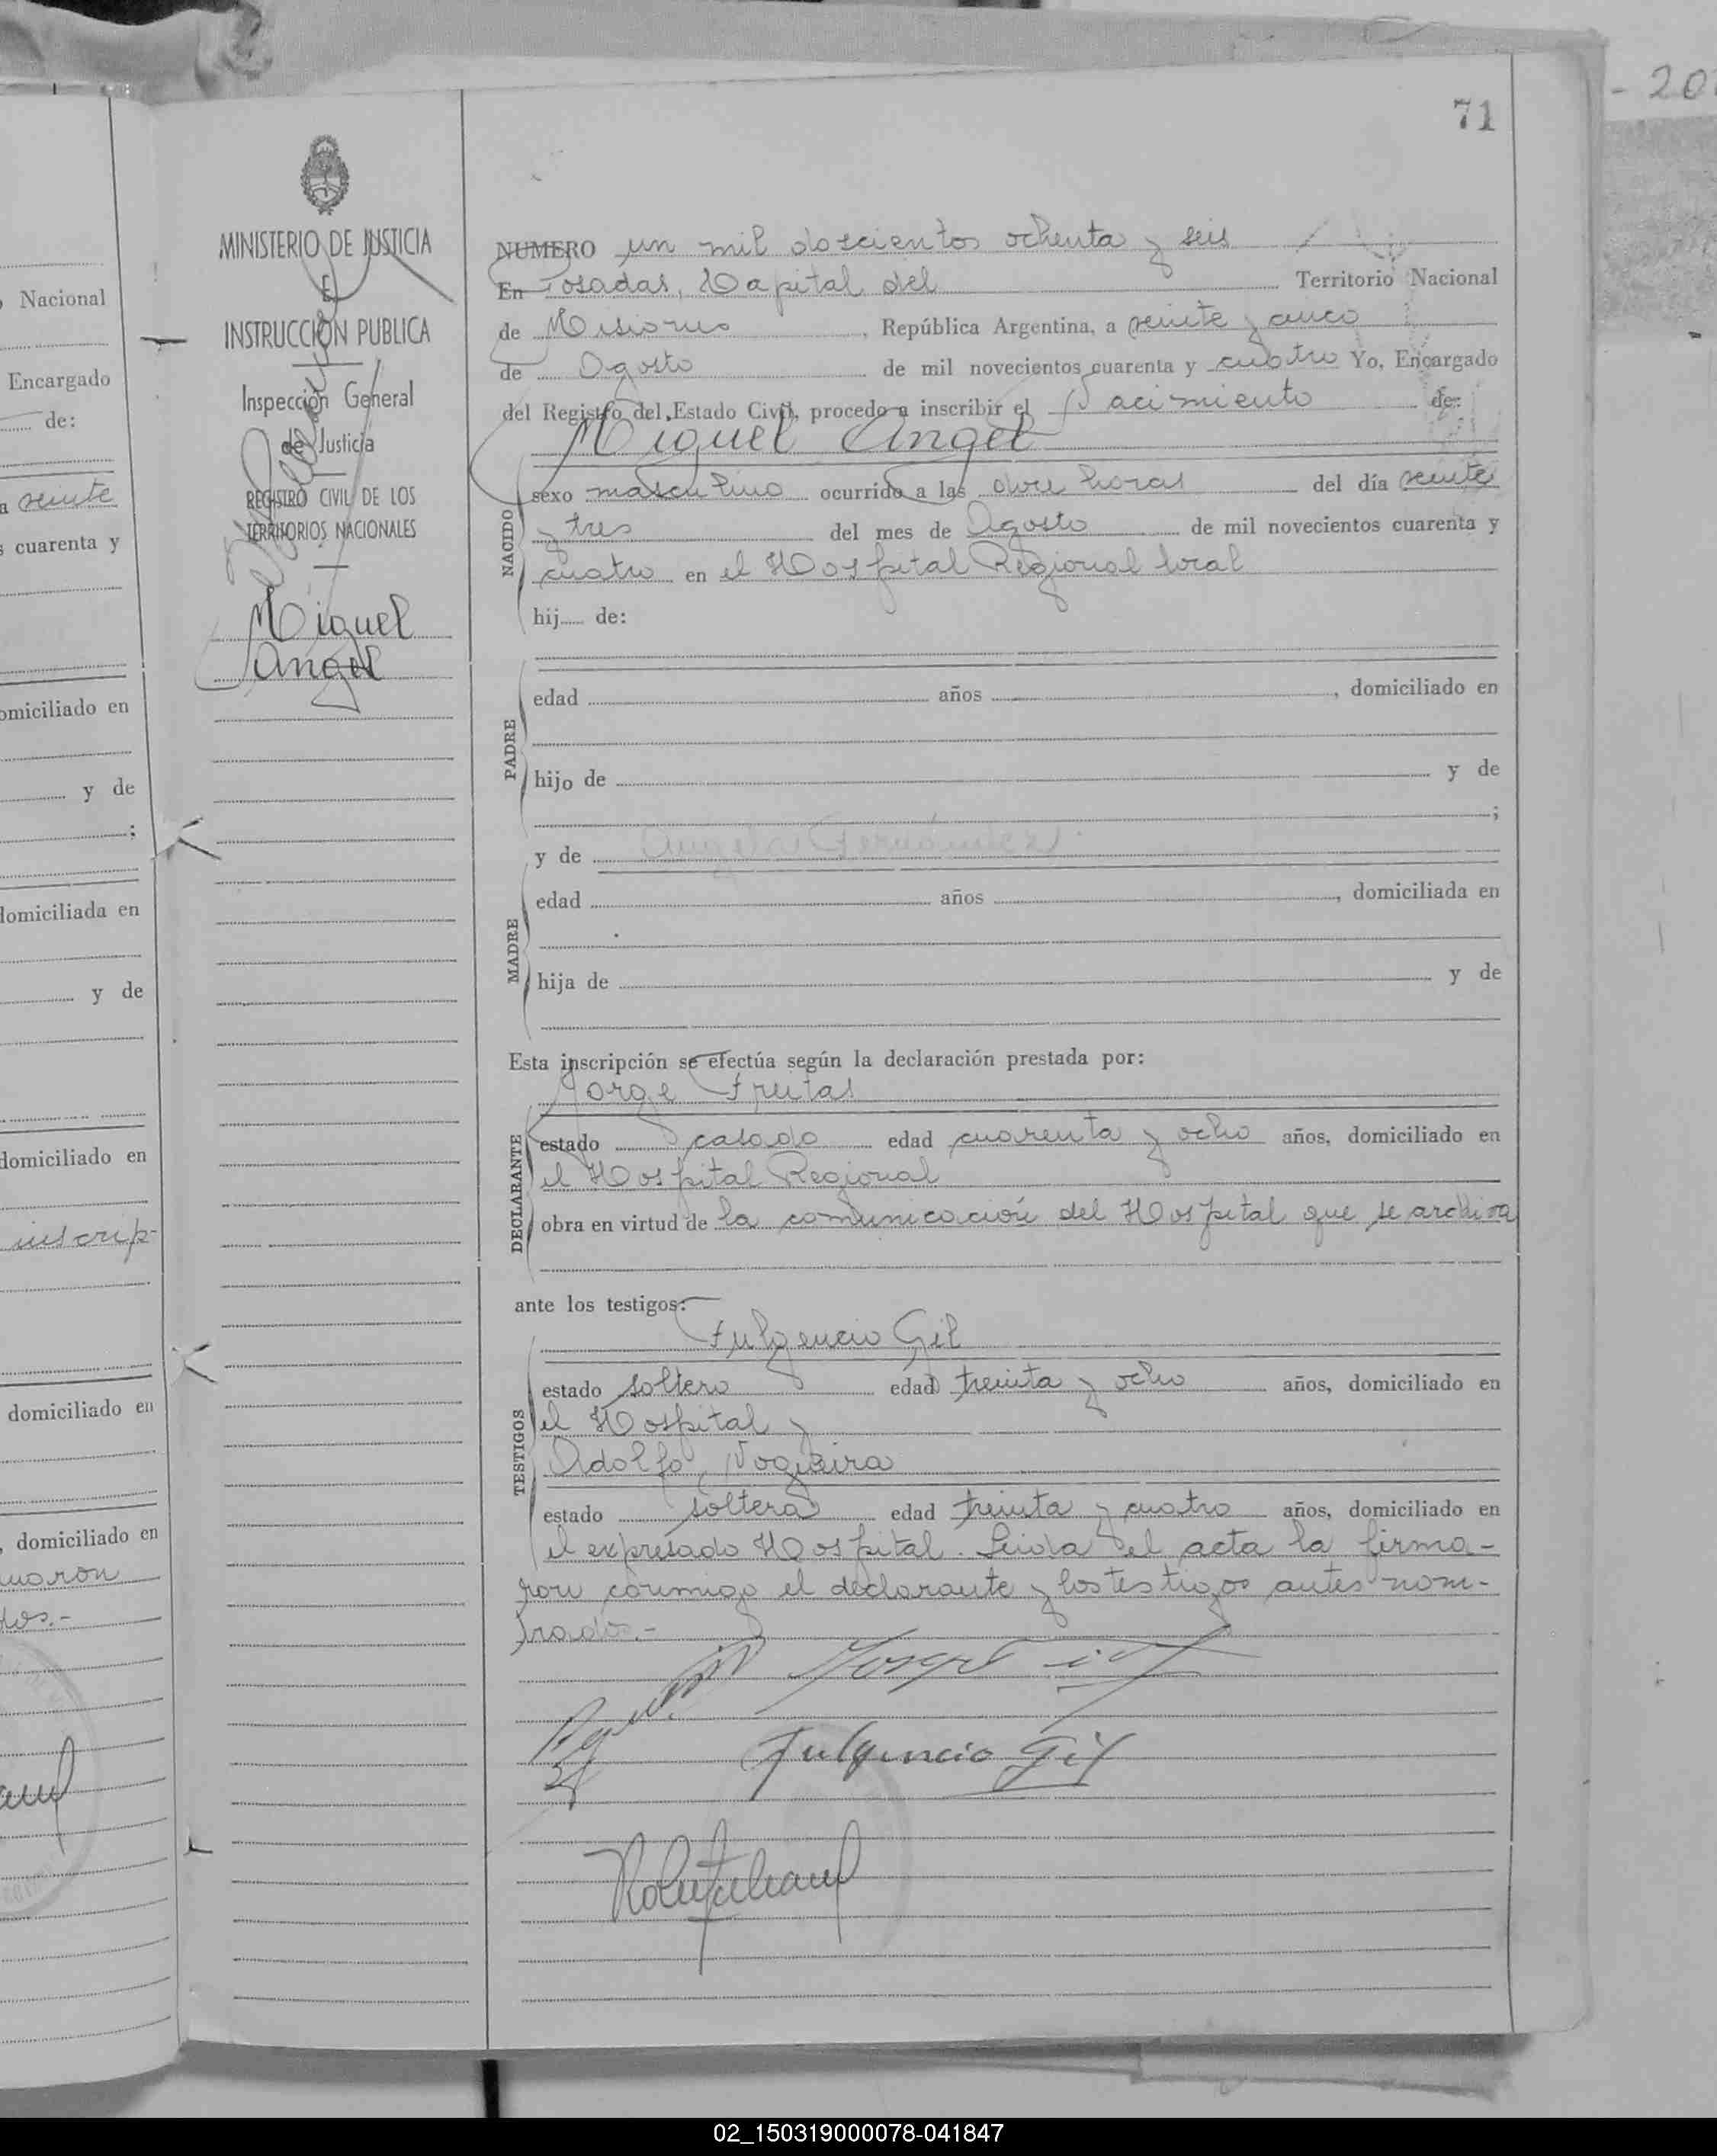 - 20
71
MINISTERIO DE JUSTICIA
E
INSTRUCCIÓN PUBLICA
Inspección General
de Justicia
REGISTRO CIVIL DE LOS
TERRITORIOS NACIONALES
Miguel
Angel
NUMERO un mil doscientos ochenta y seis
En Posadas, Capital del Territorio Nacional
de Misiones, República Argentina, a veinte y cinco
de Agosto de mil novecientos cuarenta y cuatro Yo, Encargado
del Registro del Estado Civil, procedo a inscribir el Nacimiento de:
Miguel Angel
NACIDO
sexo masculino ocurrido a las doce horas del día veinte
y tres del mes de Agosto de mil novecientos cuarenta y
cuatro en el Hospital Regional local
hij de:
PADRE
edad años , domiciliado en
hijo de y de
;
y de Angela Fernández
MADRE
edad años , domiciliada en
hija de y de
Esta inscripción se efectúa según la declaración prestada por:
Jorge Freitas
DECLARANTE
estado casado edad cuarenta y ocho años, domiciliado en
el Hospital Regional
obra en virtud de la comunicación del Hospital que se archiva
ante los testigos:
Fulgencio Gil
TESTIGOS
estado soltero edad treinta y ocho años, domiciliado en
el Hospital y
Adolfo Nogueira
estado soltero edad treinta y cuatro años, domiciliado en
el expresado Hospital. Leida el acta la firma-
ron conmigo el declarante y los testigos antes nom-
brados.-
Fulgencio Gil
Nacional
Encargado
de:
a veinte
s cuarenta y
omiciliado en
y de
;
domiciliada en
y de
domiciliado en
inscrip-
domiciliado en
, domiciliado en
maron
dos.-
02_150319000078-041847